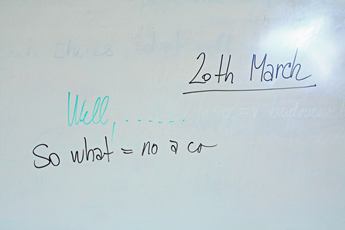 20th March
Well, ......
So what = no a co